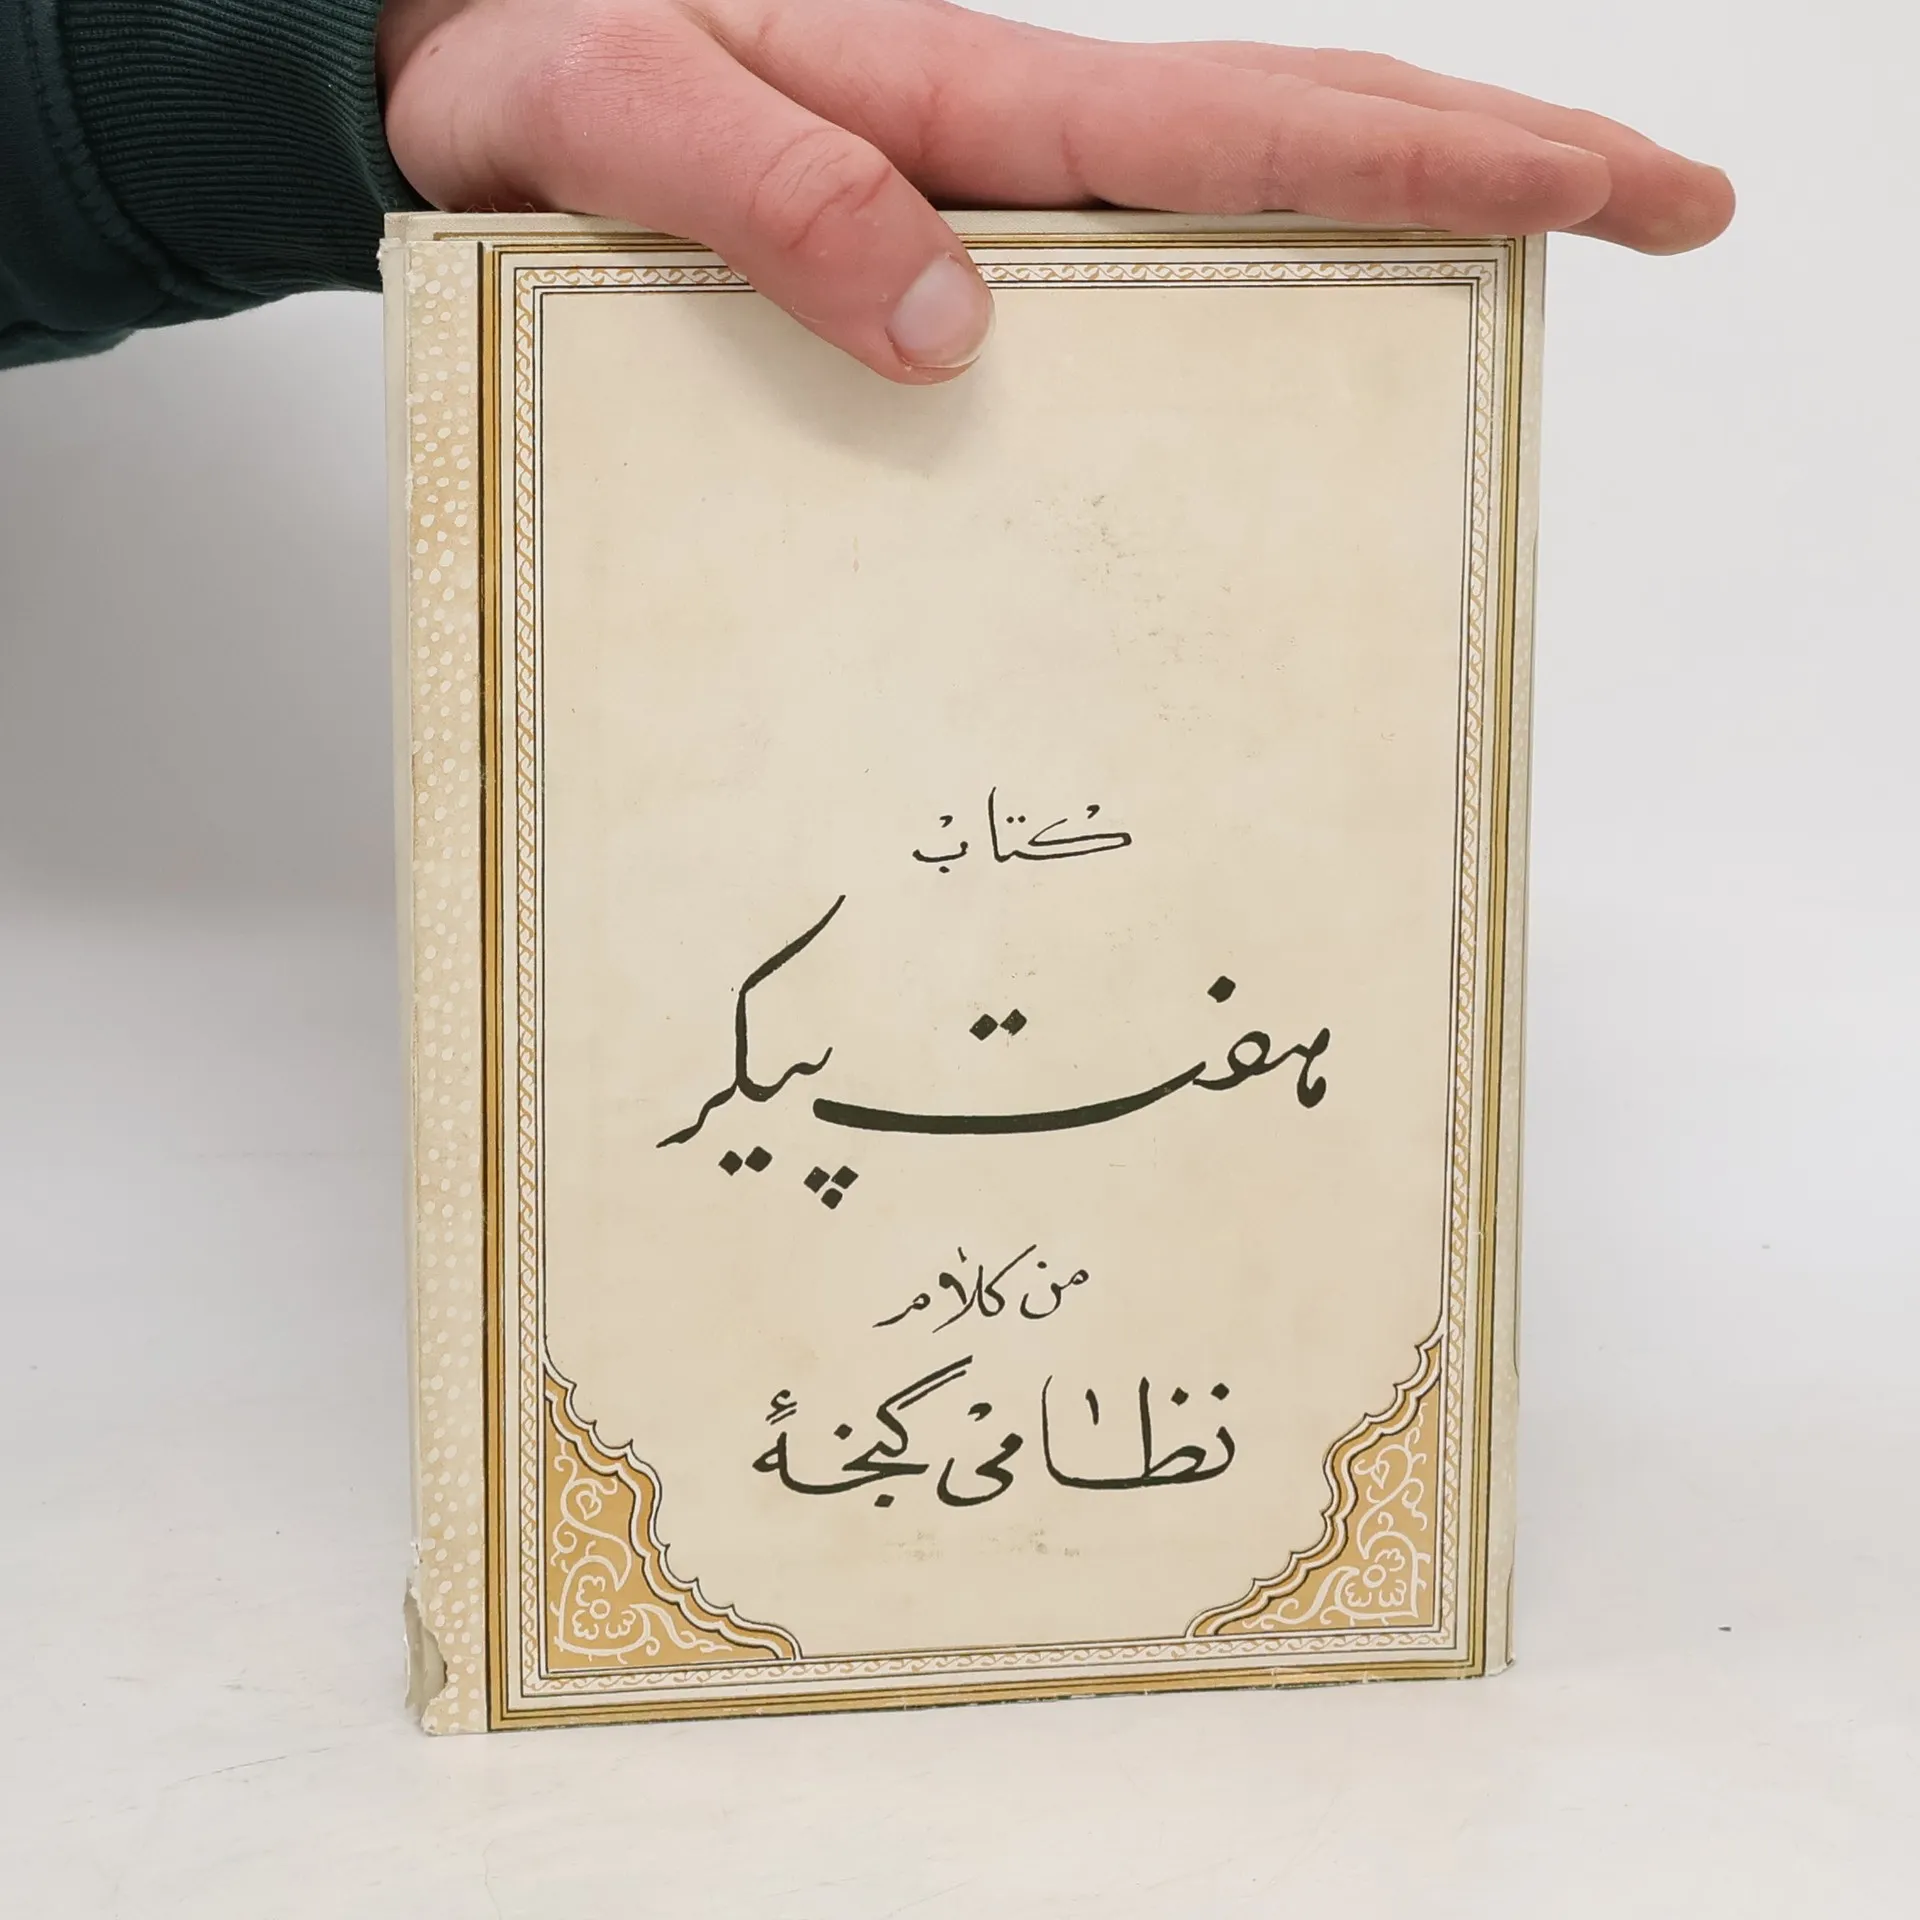 كتاب
هفت پیکر
من کلام
نظامی گنجهٔ